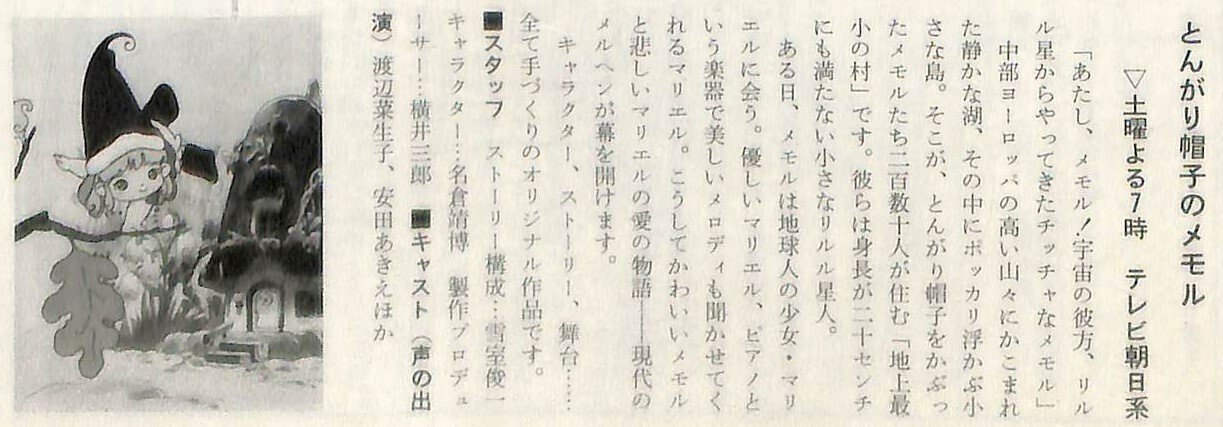 とんがり帽子のメモル
▽土曜よる7時　テレビ朝日系
「あたし、メモル！宇宙の彼方、リル
ル星からやってきたチッチャなメモル」
中部ヨーロッパの高い山々にかこまれ
た静かな湖、その中にポッカリ浮かぶ小
さな島。そこが、とんがり帽子をかぶっ
たメモルたち二百数十人が住む「地上最
小の村」です。彼らは身長が二十センチ
にも満たない小さなリルル星人。
ある日、メモルは地球人の少女・マリ
エルに会う。優しいマリエル、ピアノと
いう楽器で美しいメロディも聞かせてく
れるマリエル。こうしてかわいいメモル
と悲しいマリエルの愛の物語――現代の
メルヘンが幕を開けます。
キャラクター、ストーリー、舞台……
全て手づくりのオリジナル作品です。
■スタッフ　ストーリー構成…雪室俊一
キャラクター…名倉靖博　製作プロデュ
ーサー…横井三郎　■キャスト（声の出
演）渡辺菜生子、安田あきえほか